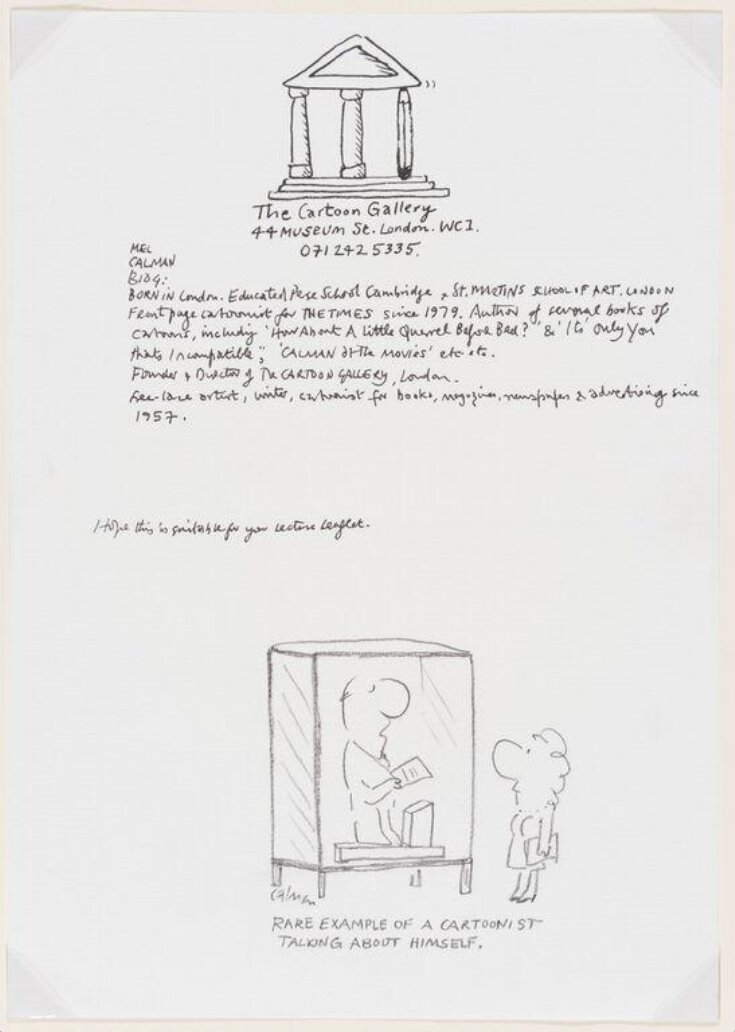 The Cartoon Gallery
44 MUSEUM St. London. WC1.
071 242 5335.
MEL
CALMAN
BIOG:
BORN in London. Educated Perse School Cambridge & St. MARTINS SCHOOL OF ART. LONDON
Front page cartoonist for THE TIMES since 1979. Author of several books of
cartoons, including 'How About A Little Quarrel Before Bed?' & 'It's only You
thats Incompatible', 'CALMAN at The Movies' etc etc.
Founder & Director of The CARTOON GALLERY, London.
Free-lance artist, writer, cartoonist for books, magazines, newspapers & advertising since
1957.
Hope this is suitable for your Lecture Leaflet.
Calman
RARE EXAMPLE OF A CARTOONIST
TALKING ABOUT HIMSELF.